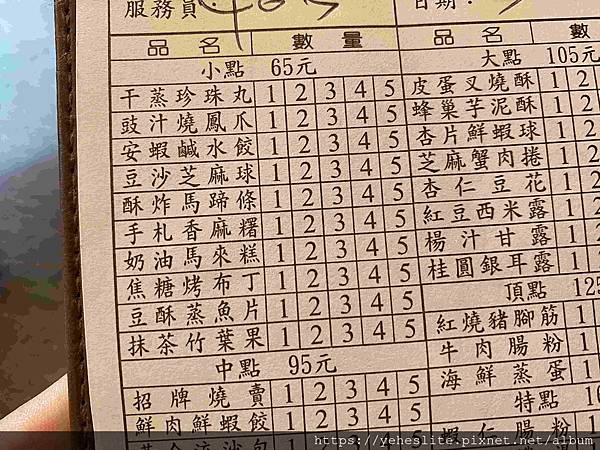 服務員：
日期：
品名 數量
小點 65元
干蒸珍珠丸 1 2 3 4 5
豉汁燒鳳爪 1 2 3 4 5
安蝦鹹水餃 1 2 3 4 5
豆沙芝麻球 1 2 3 4 5
酥炸馬蹄條 1 2 3 4 5
手札香麻糬 1 2 3 4 5
奶油馬來糕 1 2 3 4 5
焦糖烤布丁 1 2 3 4 5
豆酥蒸魚片 1 2 3 4 5
抹茶竹葉果 1 2 3 4 5
中點 95元
招牌燒賣 1 2 3 4 5
鮮肉鮮蝦餃 1 2 3 4 5
黃金流沙包
品名 數
大點 105元
皮蛋叉燒酥 1 2
蜂巢芋泥酥 1 2
杏片鮮蝦球 1 2
芝麻蟹肉捲 1 2
杏仁豆花 1 2
紅豆西米露 1 2
楊汁甘露 1 2
桂圓銀耳露 1 2
頂點 125
紅燒豬腳筋 1
牛肉腸粉 1
海鮮蒸蛋 1
特點
蝦仁腸粉
https://yeheslite.pixnet.net/album